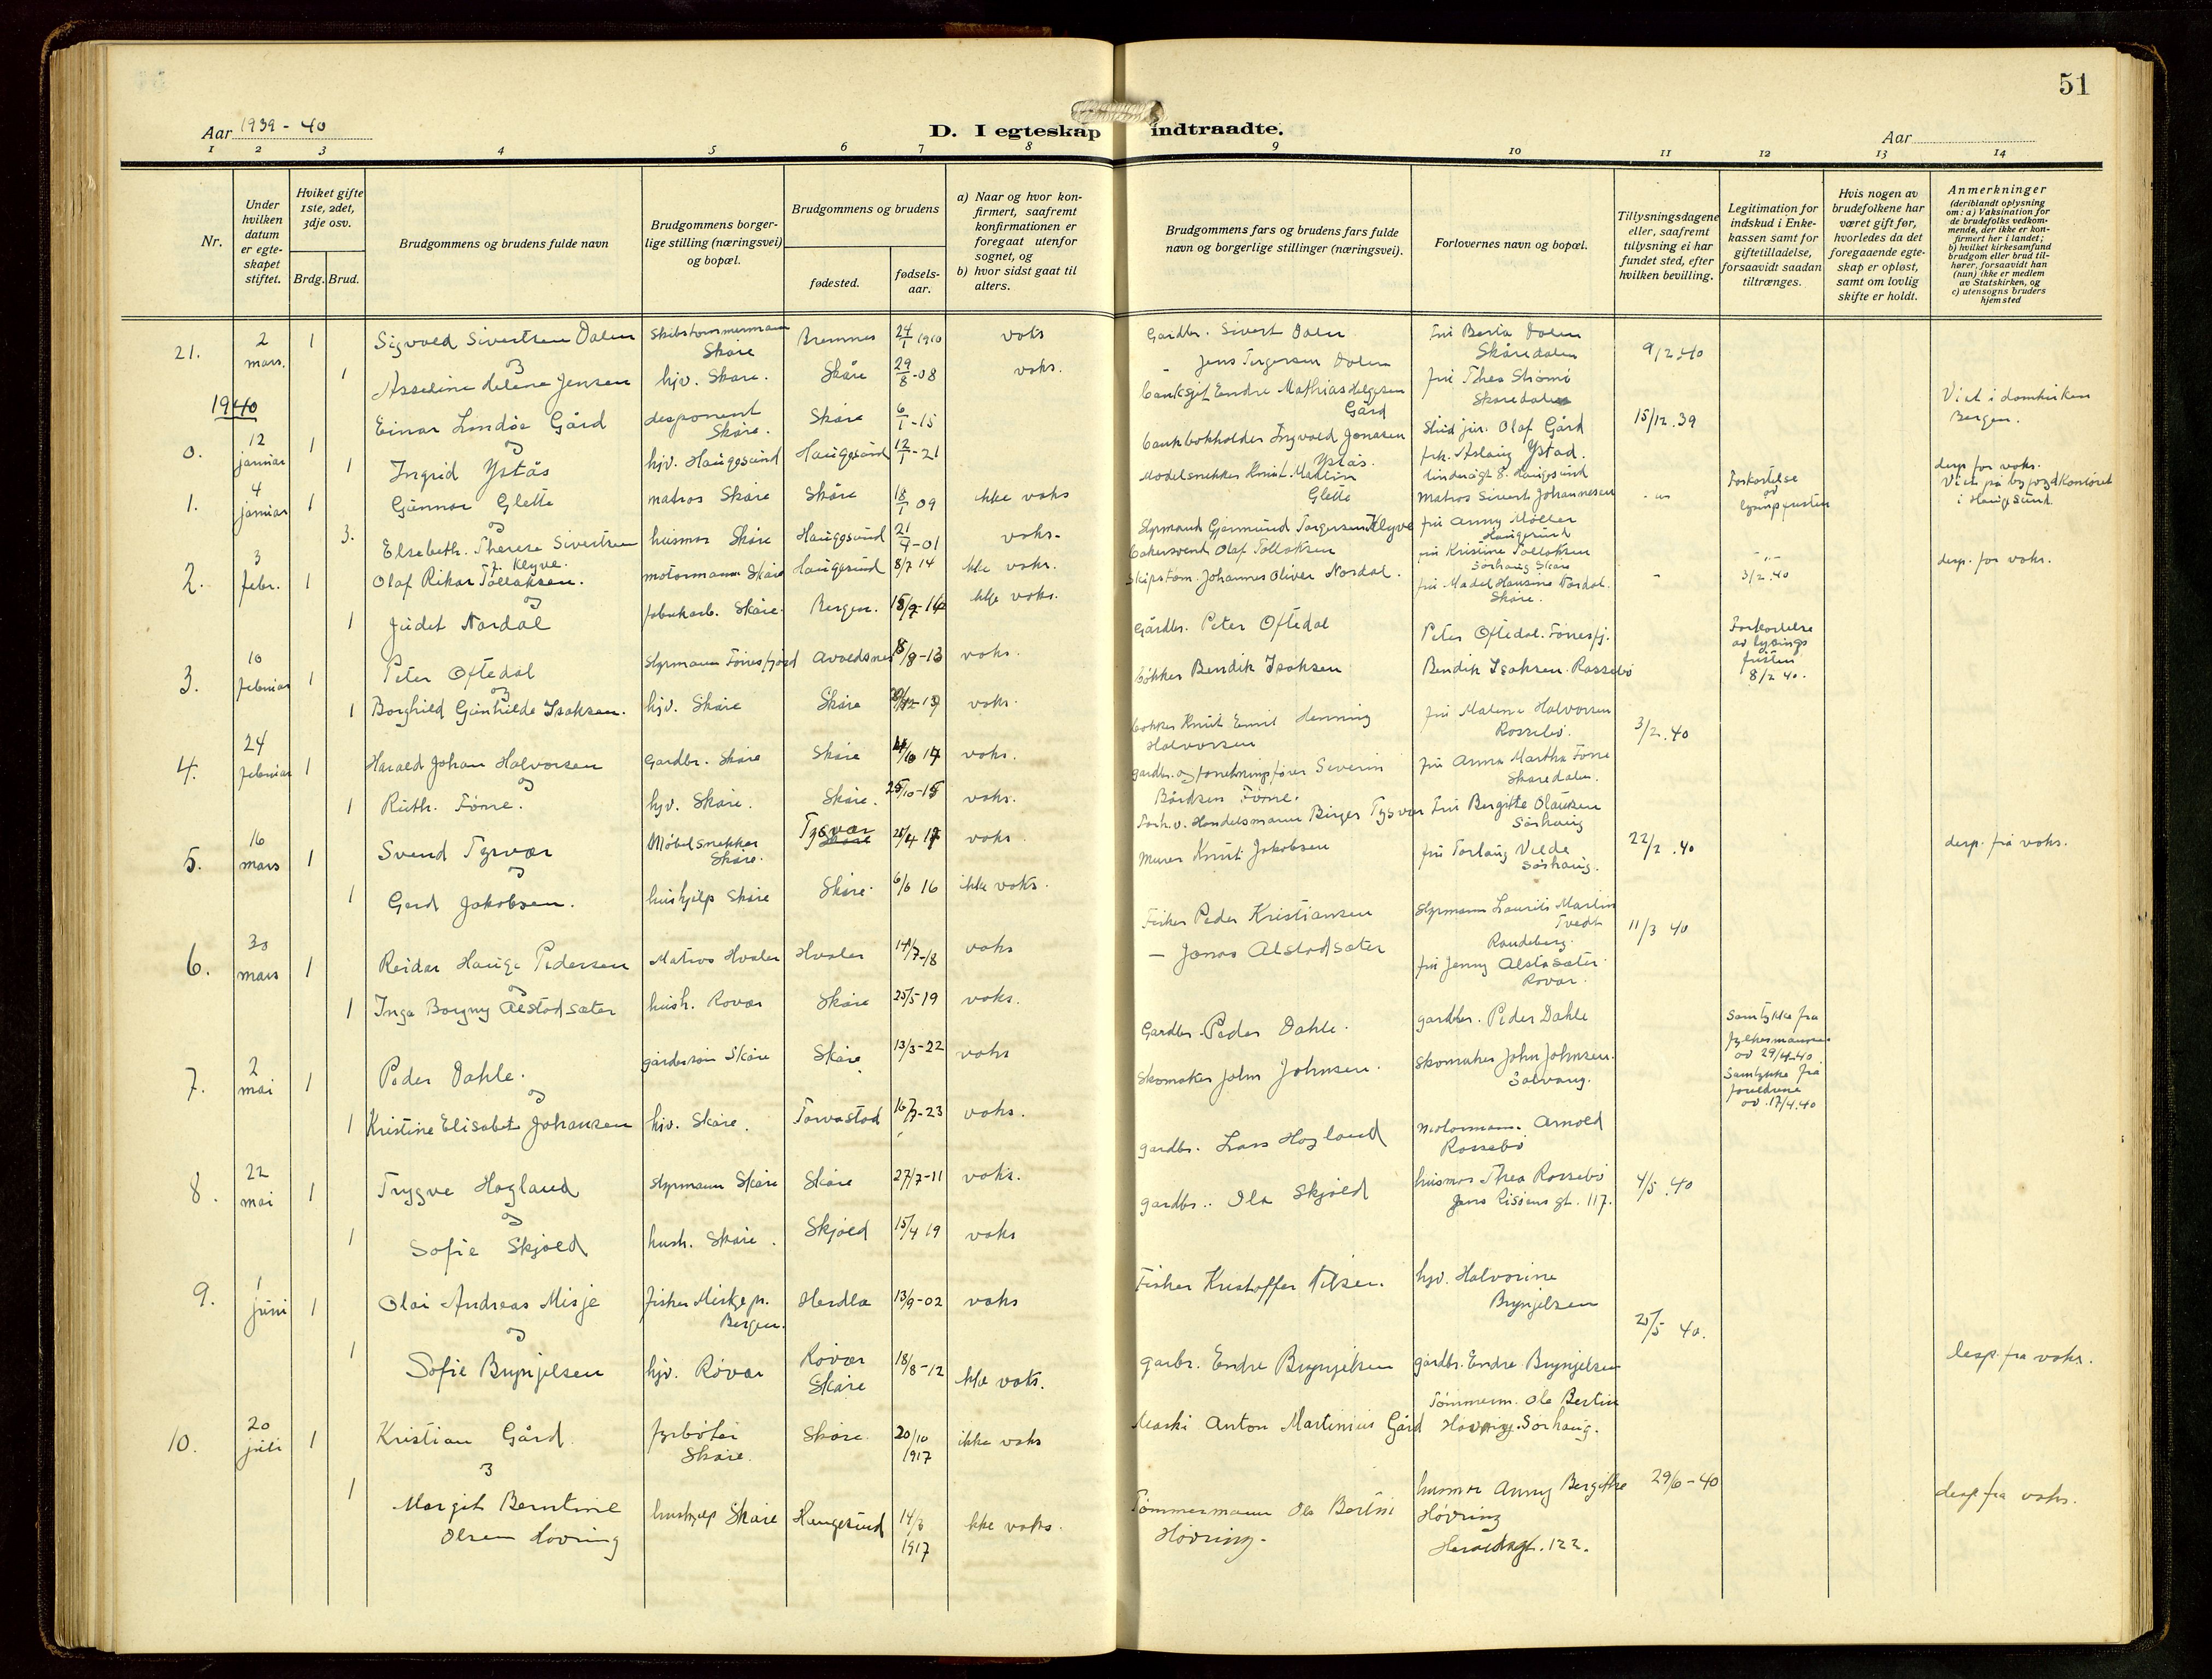 51
Aar 1939 - 40
D. I egteskap indtraadte.
Aar
1 2 3 4 5 6 7 8 9 10 11 12 13 14
Nr.
Under hvilken datum er egteskapet stiftet.
Hviket gifte 1ste, 2det, 3dje osv.
Brdg. Brud.
Brudgommens og brudens fulde navn
Brudgommens borgerlige stilling (næringsvei) og bopæl.
Brudgommens og brudens
fødested.
fødsels-aar.
a) Naar og hvor konfirmert, saafremt konfirmationen er foregaat utenfor sognet, og
b) hvor sidst gaat til alters.
Brudgommens fars og brudens fars fulde navn og borgerlige stillinger (næringsvei).
Forlovernes navn og bopæl.
Tillysningsdagene eller, saafremt tillysning ei har fundet sted, efter hvilken bevilling.
Legitimation for indskud i Enkekassen samt for giftetilladelse, forsaavidt saadan tiltrænges.
Hvis nogen av brudefolkene har været gift før, hvorledes da det foregaaende egteskap er opløst, samt om lovlig skifte er holdt.
Anmerkninger (deriblandt oplysning om: a) Vaksination for de brudefolks vedkommende, der ikke er konfirmert her i landet; b) hvilket kirkesamfund brudgom eller brud tilhører, forsaavidt han (hun) ikke er medlem av Statskirken, og c) utensogns bruders hjemsted
21. 2 mars. 1 Sigvald Sivertsen Dalen Skibstømmermann Skåre Bremnes 24/1 1910 vaks Gardbr. Sivert Dalen fru Berta Dalen Skåredalen 9/2.40
og
1 Asseline Helene Jensen hjv. Skåre. Skåre 29/8-08 vaks. - Jens Torgersen Dalen fru Thea Strømø Skåredalen
1940
0. 12 januar 1 Einar Lindøe Gård disponent Skåre. Skåre 6/1-15 banksjef Endre Mathias Helgesen Gård Stud jur. Olaf Gård 15/12.39 Viet i domkirken Bergen.
og
1 Ingrid Ystås hjv. Haugesund Haugesund 12/1-21 bankbokholder Ingvald Jonasen Ystås. frk. Aslaug Ystad.
1. 4 januar 1 Gunnar Glette matros Skåre Skåre 18/1 09 ikke vaks Modelsnekker Knut Martin Glette Matros Sivert Johannesen - " - Forkortelse av lysningsfristen desp. for vaks. Viet på byfogdkontoret i Haugesund.
og
3. Elsebeth. Therese Sivertsen f. Klyve. husmor Skåre Haugesund 21/4-01 vaks- Styrmand Gjermund Torgersen Klyve fru Anny Møller Haugesund
2. 3 febr. 1 Olaf Rikar Tollaksen. motormann Skåre Haugesund 8/7 14 ikke vaks. bakersvend Olaf Tollaksen fru Kristine Tollaksen Sørhaug Skåre - - " - 3/2.40 desp. for vaks.
og
1 Judet Nordal fabrikarb. Skåre. Bergen. 15/9-14 ikke vaks. Skipstøm. Johannes Oliver Nordal. fru Madel Hansine Nordal. Skåre.
3. 10 februar 1 Peter Oftedal Styrmann Førresfjord Avaldsnes 8/8-13 vaks. Gårdbr. Peter Oftedal Peter Oftedal. Førresfj. Forkortelse av lysings fristen 8/2 40.
og
1 Borghild Gunhilde Isaksen. hjv. Skåre Skåre vaks. bøkker Bendik Isaksen Bendik Isaksen. Rossebø
4. 24 februar 1 Harald Johan Halvorsen Gardbr. Skåre Skåre vaks. bøkker Knut Emil Henning Halvorsen fru Malene Halvorsen Rossebø. 3/2.40
og
1 Ruth. Førre. hjv. Skåre. Skåre. 25/10-15 vaks. gardbr. og forretningsfører Severin Bårdsen Førre. fru Anna Martha Førre Skåredalen.
5. 16 mars 1 Svend Tysvær Møbelsnekker Skåre. Tysvær vaks. Forh.v. Handelsmann Birger Tysvær Fru Bergitte Olausen Sørhaug 22/2.40 desp. fra vaks.
og
1 Gerd Jakobsen. hushjelp Skåre Skåre. 6/6 16 ikke vaks. Murer Knut Jakobsen fru Torlaug Velde Sørhaug.
6. 30 mars 1 Reidar Hauge Pedersen Matros Hvaler Hvaler 14/7-18 vaks Fisker Peder Kristiansen Styrmann Laurits Martin Tvedt Raudeberg. 11/3 40
og
1 Inga Borgny Alstadsæter hush. Røvær Skåre 25/5 19 vaks. - Jonas Alstadsæter fru Jenny Alstasæter. Røvær.
7. 2 mai 1 Peder Dahle. gårdersøn Skåre Skåre 13/3-22 vaks Gardbr. Peder Dahle. gardbr. Peder Dahle Samtykke fra fylkesmannen av 29/4-40
og
1 Kristine Elisabet Johansen hjv. Skåre. Torvastad 16/7-23 vaks. Skomaker John Johnsen. Skomaker John Johnsen. Solvang. Samtykke fra foreldrene av. 17/4.40
8. 22 mai 1 Trygve Hogland styrmann Skåre Skåre 27/7-11 vaks. gardbr. Lars Hogland motormann. Arnold Rossebø 4/5.40
og
1 Sofie Skjold hush. Skåre. Skjold 15/4 19 vaks gardbr.. Ola Skjold husmor Thea Rossebø Jens Risøens gt. 117.
9. 1 juni 1 Olai Andreas Misje fisker Misje pr. Bergen. Herdla 13/9-02 vaks Fisker Kristoffer Nilsen. hjv. Halvorine Brynjelsen 25/5 40.
og
1 Sofie Brynjelsen hjv. Røvær Røvær Skåre 18/8-12 ikke vaks. garbr. Endre Brynjelsen gårdbr. Endre Brynjelsen desp. fra vaks.
10. 20 juli 1 Kristian Gård. fyrbøter Skåre. Skåre. 20/10 1917 ikke vaks Maski Anton Martinius Gård Tømmerm. Ole Bertin Høvring. Sørhaug. 29/6-40
og
1 Margit Berntine Olsen Hovring hushjelp Skåre Haugesund 14/8 1917 ikke vaks. Tømmermann Ole Bertin Høvring. husmor Anny Bergitte Høvring Haraldsgt. 122. desp fra vaks.